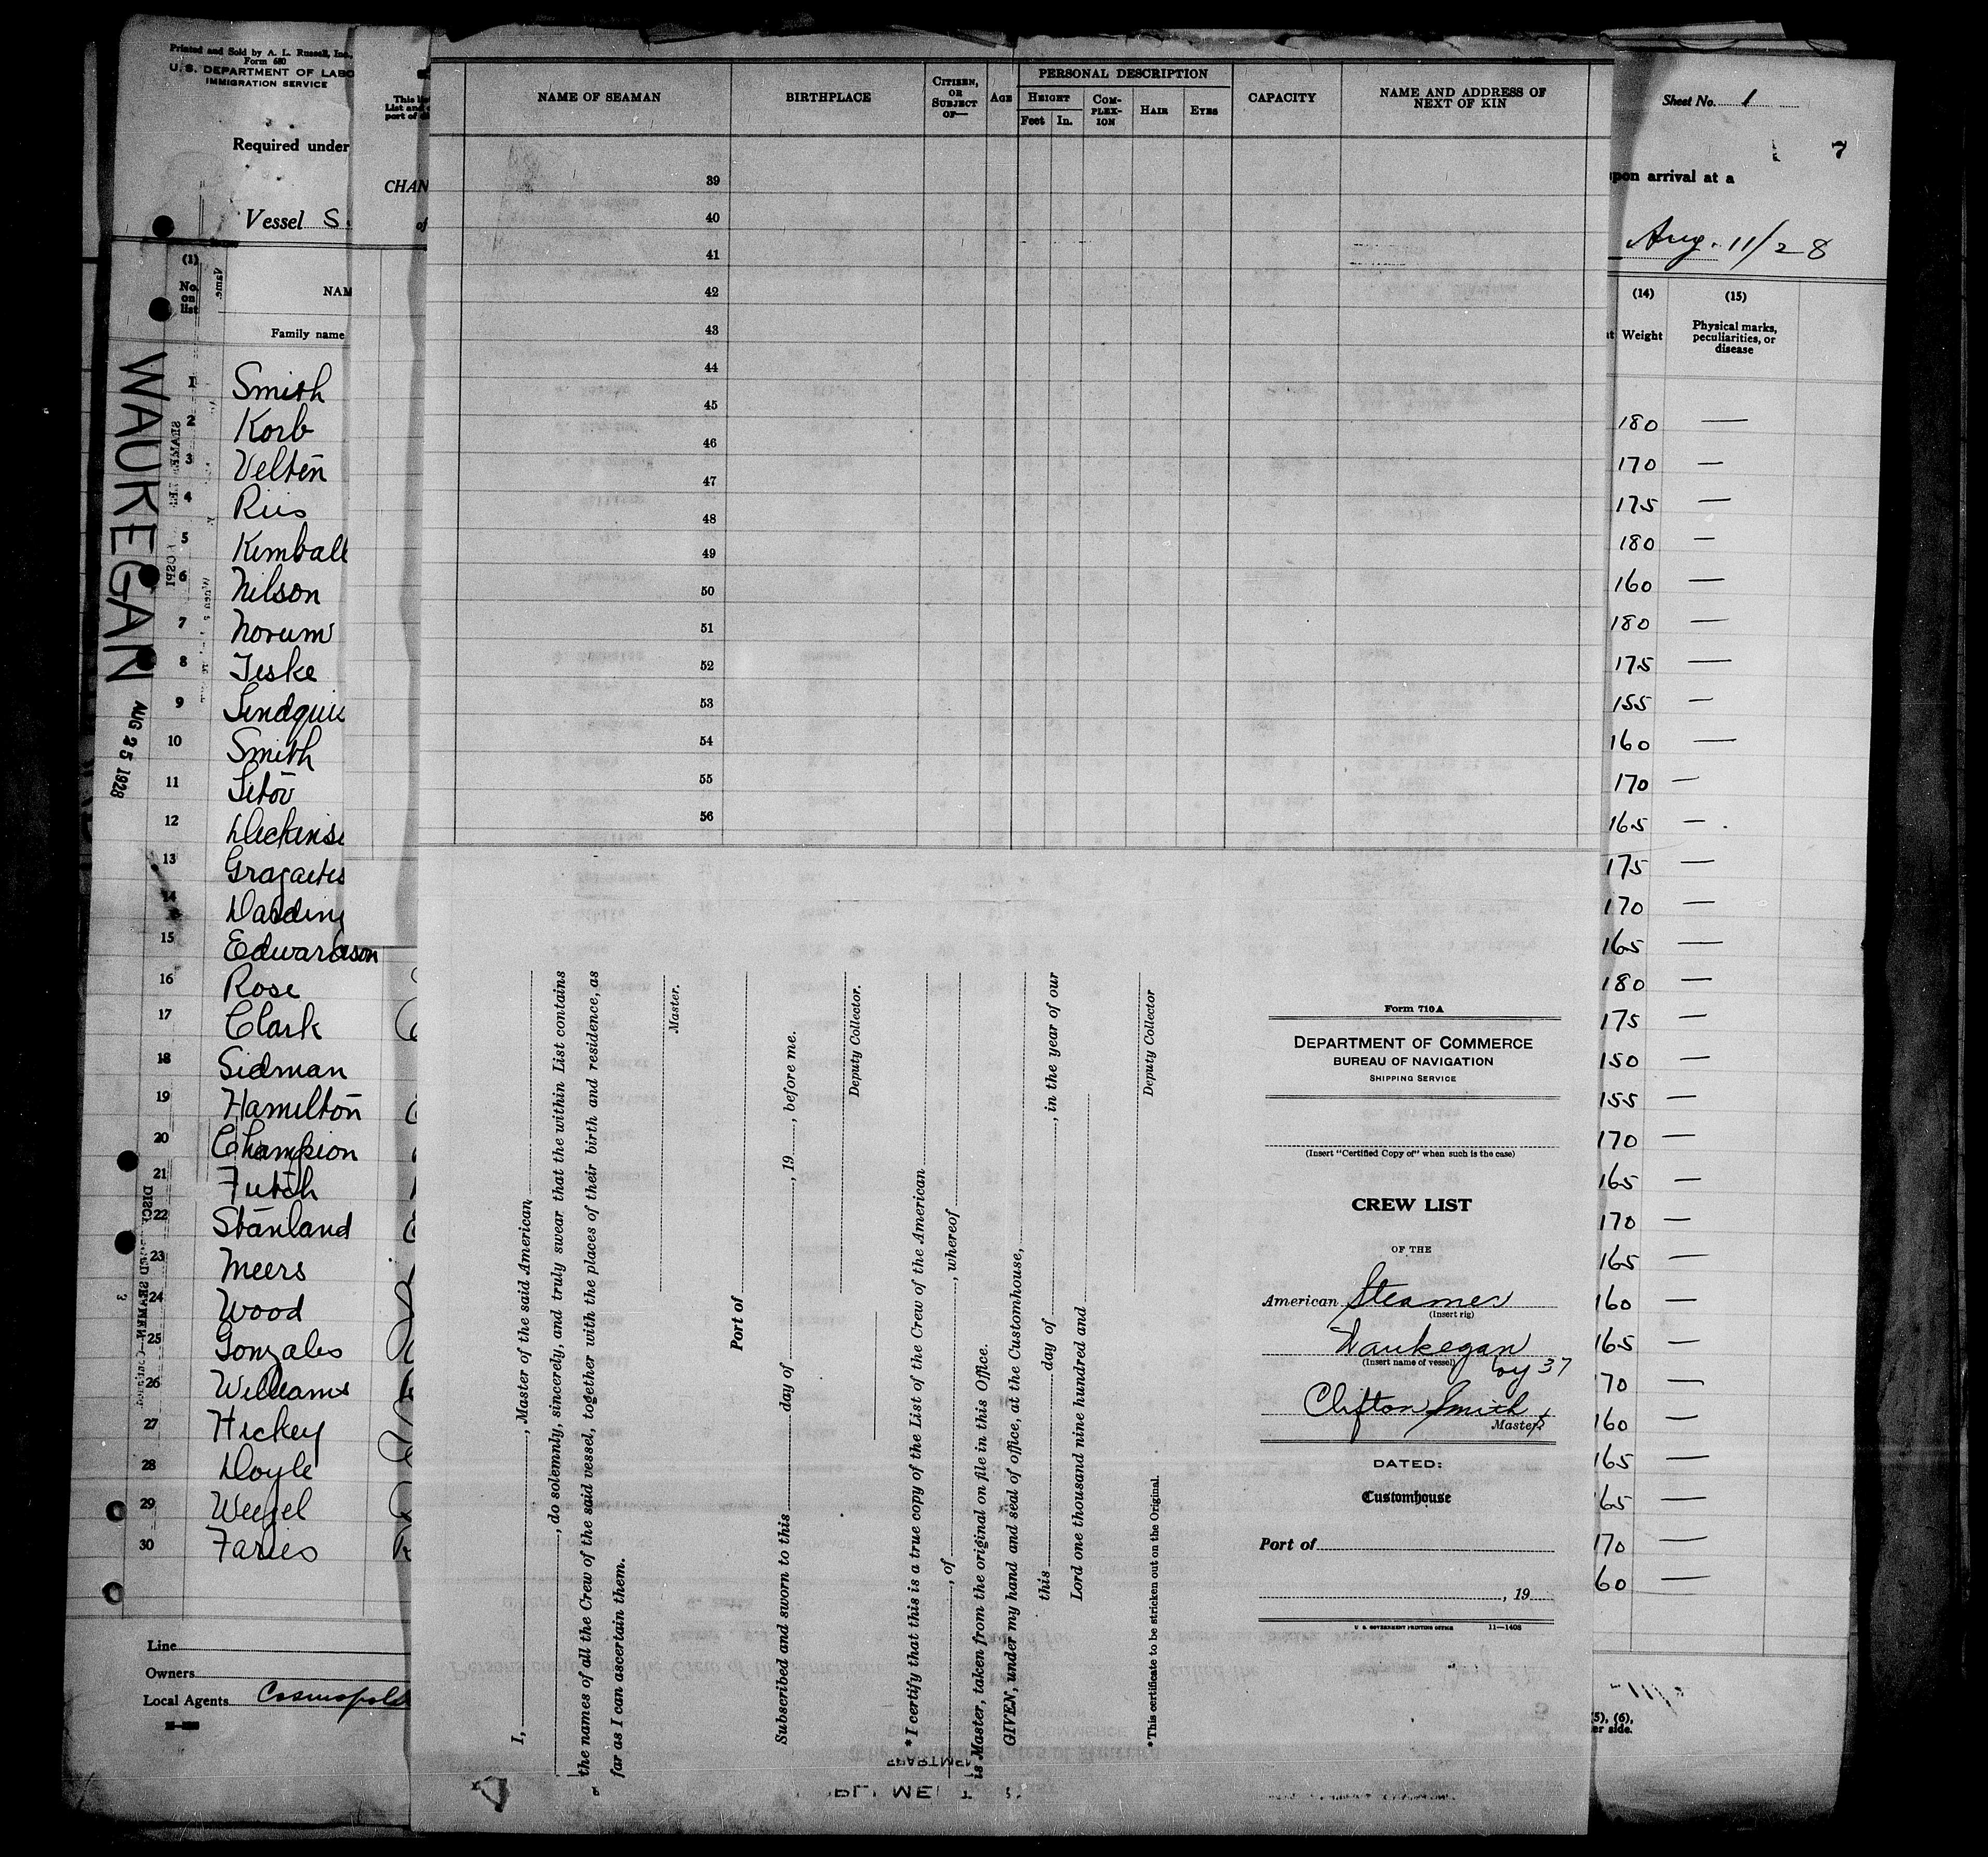 Printed and Sold by A. L. Russell, Inc.,
Form 680
U. S. DEPARTMENT OF LABO
IMMIGRATION SERVICE
Required under
Vessel S.
(1)
No. on list
NAM
Family name
WAUKEGAN
AUG 25 1928
1 Smith
2 Korb
3 Velten
4 Riis
5 Kimball
6 Nilson
7 Norum
8 Teske
9 Lindquis
10 Smith
11 Titov
12 Dickins
13 Gragaites
14 Harding
15 Edwardson
16 Rose
17 Clark
18 Sidman
19 Hamilton
20 Champion
21 Futch
22 Stanland
23 Meers
24 Wood
25 Gonzales
26 Williams
27 Hickey
28 Doyle
29 Weigel
30 Faries
Line
Owners
Local Agents Cosmopoli
This lis
List and
port of
CHAN
of
NAME OF SEAMAN
BIRTHPLACE
CITIZEN, OR SUBJECT OF—
AGE
PERSONAL DESCRIPTION
HEIGHT
Feet In.
COM-PLEX-ION
HAIR
EYES
CAPACITY
NAME AND ADDRESS OF NEXT OF KIN
39
40
41
42
43
44
45
46
47
48
49
50
51
52
53
54
55
56
I, , Master of the said American
, do solemnly, sincerely, and truly swear that the within List contains
the names of all the Crew of the said vessel, together with the places of their birth and residence, as
far as I can ascertain them.
Master.
Port of
Subscribed and sworn to this day of , 19 , before me.
Deputy Collector.
*I certify that this is a true copy of the List of the Crew of the American
, of , whereof
is Master, taken from the original on file in this Office.
GIVEN, under my hand and seal of office, at the Customhouse,
this day of , in the year of our
Lord one thousand nine hundred and
Deputy Collector
*This certificate to be stricken out on the Original.
Form 710A
DEPARTMENT OF COMMERCE
BUREAU OF NAVIGATION
SHIPPING SERVICE
(Insert "Certified Copy of" when such is the case)
CREW LIST
OF THE
American Steamer
(Insert rig)
Waukegan
(Insert name of vessel)
Voy 37
Clifton Smith
Master
DATED:
Customhouse
Port of
, 19
U. S. GOVERNMENT PRINTING OFFICE 11—1408
Sheet No. 1
7
upon arrival at a
Aug. 11/28
(14)
Weight
(15)
Physical marks, peculiarities, or disease
180 —
170 —
175 —
180 —
160 —
180 —
175 —
155 —
160 —
170 —
165 —
175 —
170 —
165 —
180 —
175 —
150 —
155 —
170 —
165 —
170 —
165 —
160 —
165 —
70 —
160 —
165 —
65 —
170 —
60 —
5), (6),
er side.